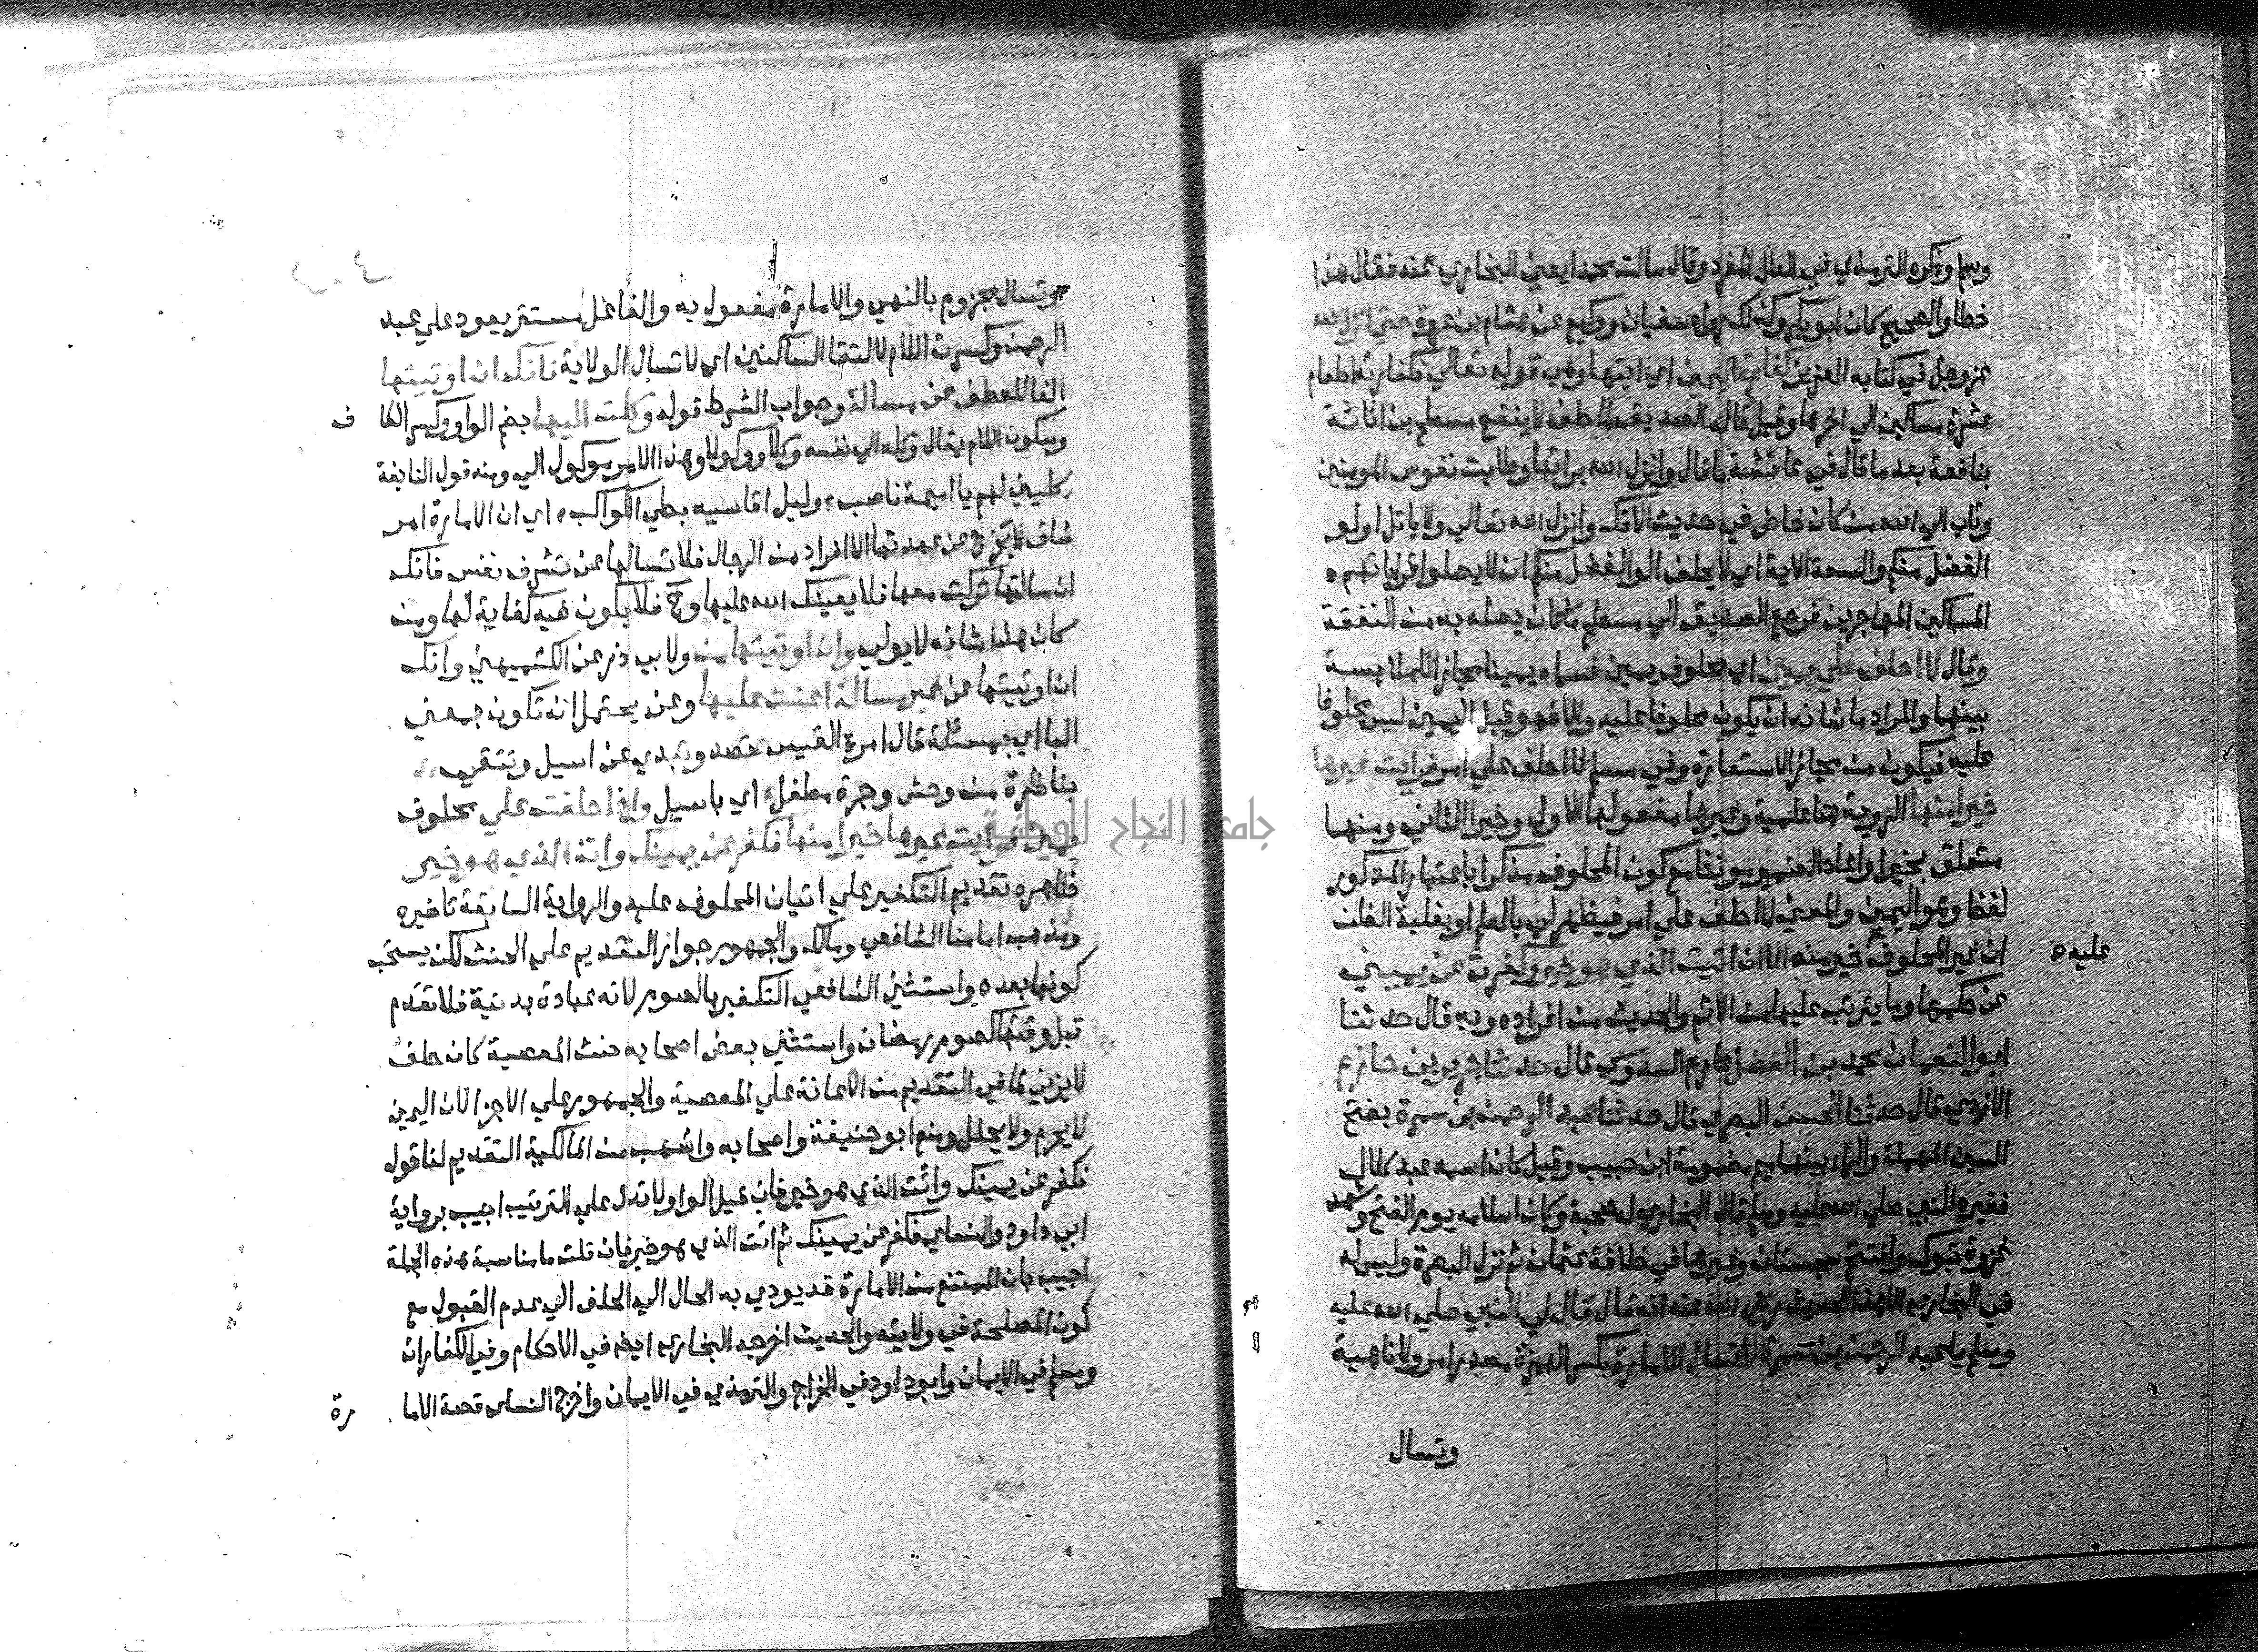 وسلم وذكره الترمذي في العلل المفرد وقال سالت محمدا يعني البخاري عنه فقال هذا
خطا والصحيح كان ابو بكر وكذلك رواه سفيان ووكيع عن هشام بن عروة حتي انزل الله
عز وجل في كتابه العزيز كفارة اليمين اي ايتها وهي قوله تعالي فكفارته اطعام
عشرة مساكين الي اخرها وقيل قال الصديق لما حلف لا ينفع مسطح بن اثاثة
بنافعة بعد ما قال في عائشة ما قال وانزل الله براتها وطابت نفوس المومنين
وتاب الي الله من كان خاض في حديث الافك وانزل الله تعالي ولا ياتل اولو
الفضل منكم والسعة الاية اي لا يحلف الو الفضل منكم ان لا يصلوا قراباتهم
المساكين المهاجرين فرجع الصديق الي مسطح ما كان يصله به من النفقة
وقال لا احلف علي يمين اي محلوف يمين فسماه يمينا مجازا للملابسة
بينهما والمراد ما شانه ان يكون محلوفا عليه والا فهو قبل اليمين ليس محلوفا
عليه فيكون من مجاز الاستعارة وفي مسلم لا احلف علي امر فرايت غيرها
خيرا منها الروية هنا علمية وغيرها مفعولها الاول وخيرا الثاني ومنها
متعلق بخيرا واعاد الضمير مونثا مع كون المحلوف مذكرا باعتبار المذكور
لفظا وهو اليمين والمعني لا احلف علي امر فيظهر لي بالعلم او بغلبة الظن
ان غير المحلوف خير منه الا ان اتيت الذي هو خير وكفرت عن يميني
عليه
عن حكمها وما يترتب عليها من الاثم والحديث من افراده وبه قال حدثنا
ابو النعمان محمد بن الفضل عارم السدوسي قال حدثنا جرير بن حازم
الازدي قال حدثنا الحسن البصري قال حدثنا عبد الرحمن بن سمرة بفتح
السين المهملة والراء بينهما ميم مضمومة ابن حبيب وقيل كان اسمه عبد كلال
فغيره النبي صلي الله عليه وسلم قال البخاري له صحبة وكان اسلامه يوم الفتح وشهد
غزوة تبوك وافتتح سجستان وغيرها في خلافة عثمان ثم نزل البصرة وليس له
في البخاري الا هذا الحديث رضي الله عنه انه قال قال لي النبي صلي الله عليه
وسلم يا عبد الرحمن بن سمرة لا تسال الامارة بكسر الهمزة مصدر امر ولا ناهية
وتسال
وتسال مجزوم بالنهي والامارة مفعول به والفاعل مستتر يعود علي عبد
الرحمن وكسرت اللام لالتقا الساكنين اي لا تسال الولاية فانك ان اوتيتها
الفا للعطف عن مسالة وجواب الشرط قوله وكلت اليها بضم الواو وكسر الكا ف
وسكون اللام يقال وكله الي نفسه وكلا ووكولا وهذا الامر موكول الي ومنه قول النابغة
كليني لهم يا اميمة ناصب وليل اقاسيه بطي الكواكب اي ان الامارة امر
شاق لا يخرج عن عهدتها الا افراد من الرجال فلا تسالها عن تشرف نفس فانك
ان سالتها تركت معها فلا يعينك الله عليها وح فلا يكون فيه كفاية لها ومن
كان هذا شانه لا يولي وان اوتيتها من ولابي ذر عن الكشميهني وانك
ان اوتيتها عن غير مسالة اعنت عليها وعن يحتمل ان تكون بمعني
البا اي بمسئلة قال امرء القيس تصد وتبدي عن اسيل وتتقي
بناظرة من وحش وجرة مطفل اي باسيل واذا حلفت علي محلوف
يمين فرايت غيرها خيرا منها فكفر عن يمينك وات الذي هو خير
ظاهره تقديم التكفير علي اتيان المحلوف عليه والرواية السابقة تاخيره
ومذهب امامنا الشافعي ومالك والجمهور جواز التقديم علي الحنث لكن يستحب
كونها بعده واستثني الشافعي التكفير بالصوم لانه عبادة بدنية فلا تقدم
قبل وقتها كصوم رمضان واستثني بعض اصحابه حنث المعصية كان حلف
لا يزني لما في التقديم من الاعانة علي المعصية والجمهور علي الاجزا لان اليمين
لا يحرم ولا يحلل ومنع ابو حنيفة واصحابه واشهب من المالكية التقديم لنا قوله
فكفر عن يمينك وائت الذي هو خير فان قيل الواو لا تدل علي الترتيب اجيب برواية
ابي داود والنساي فكفر عن يمينك ثم ائت الذي هو خير فان قلت ما مناسبة هذه الجملة
اجيب بان الممتنع من الامارة قد يودي به الحال الي الحلف الي عدم القبول مع
كون المصلحة في ولايته والحديث اخرجه البخاري ايضا في الاحكام وفي الكفارات
ومسلم في الايمان وابو داود في الخراج والترمذي في الايمان واخرج النساي قصة الاما رة
جامعة النجاح الوطنية